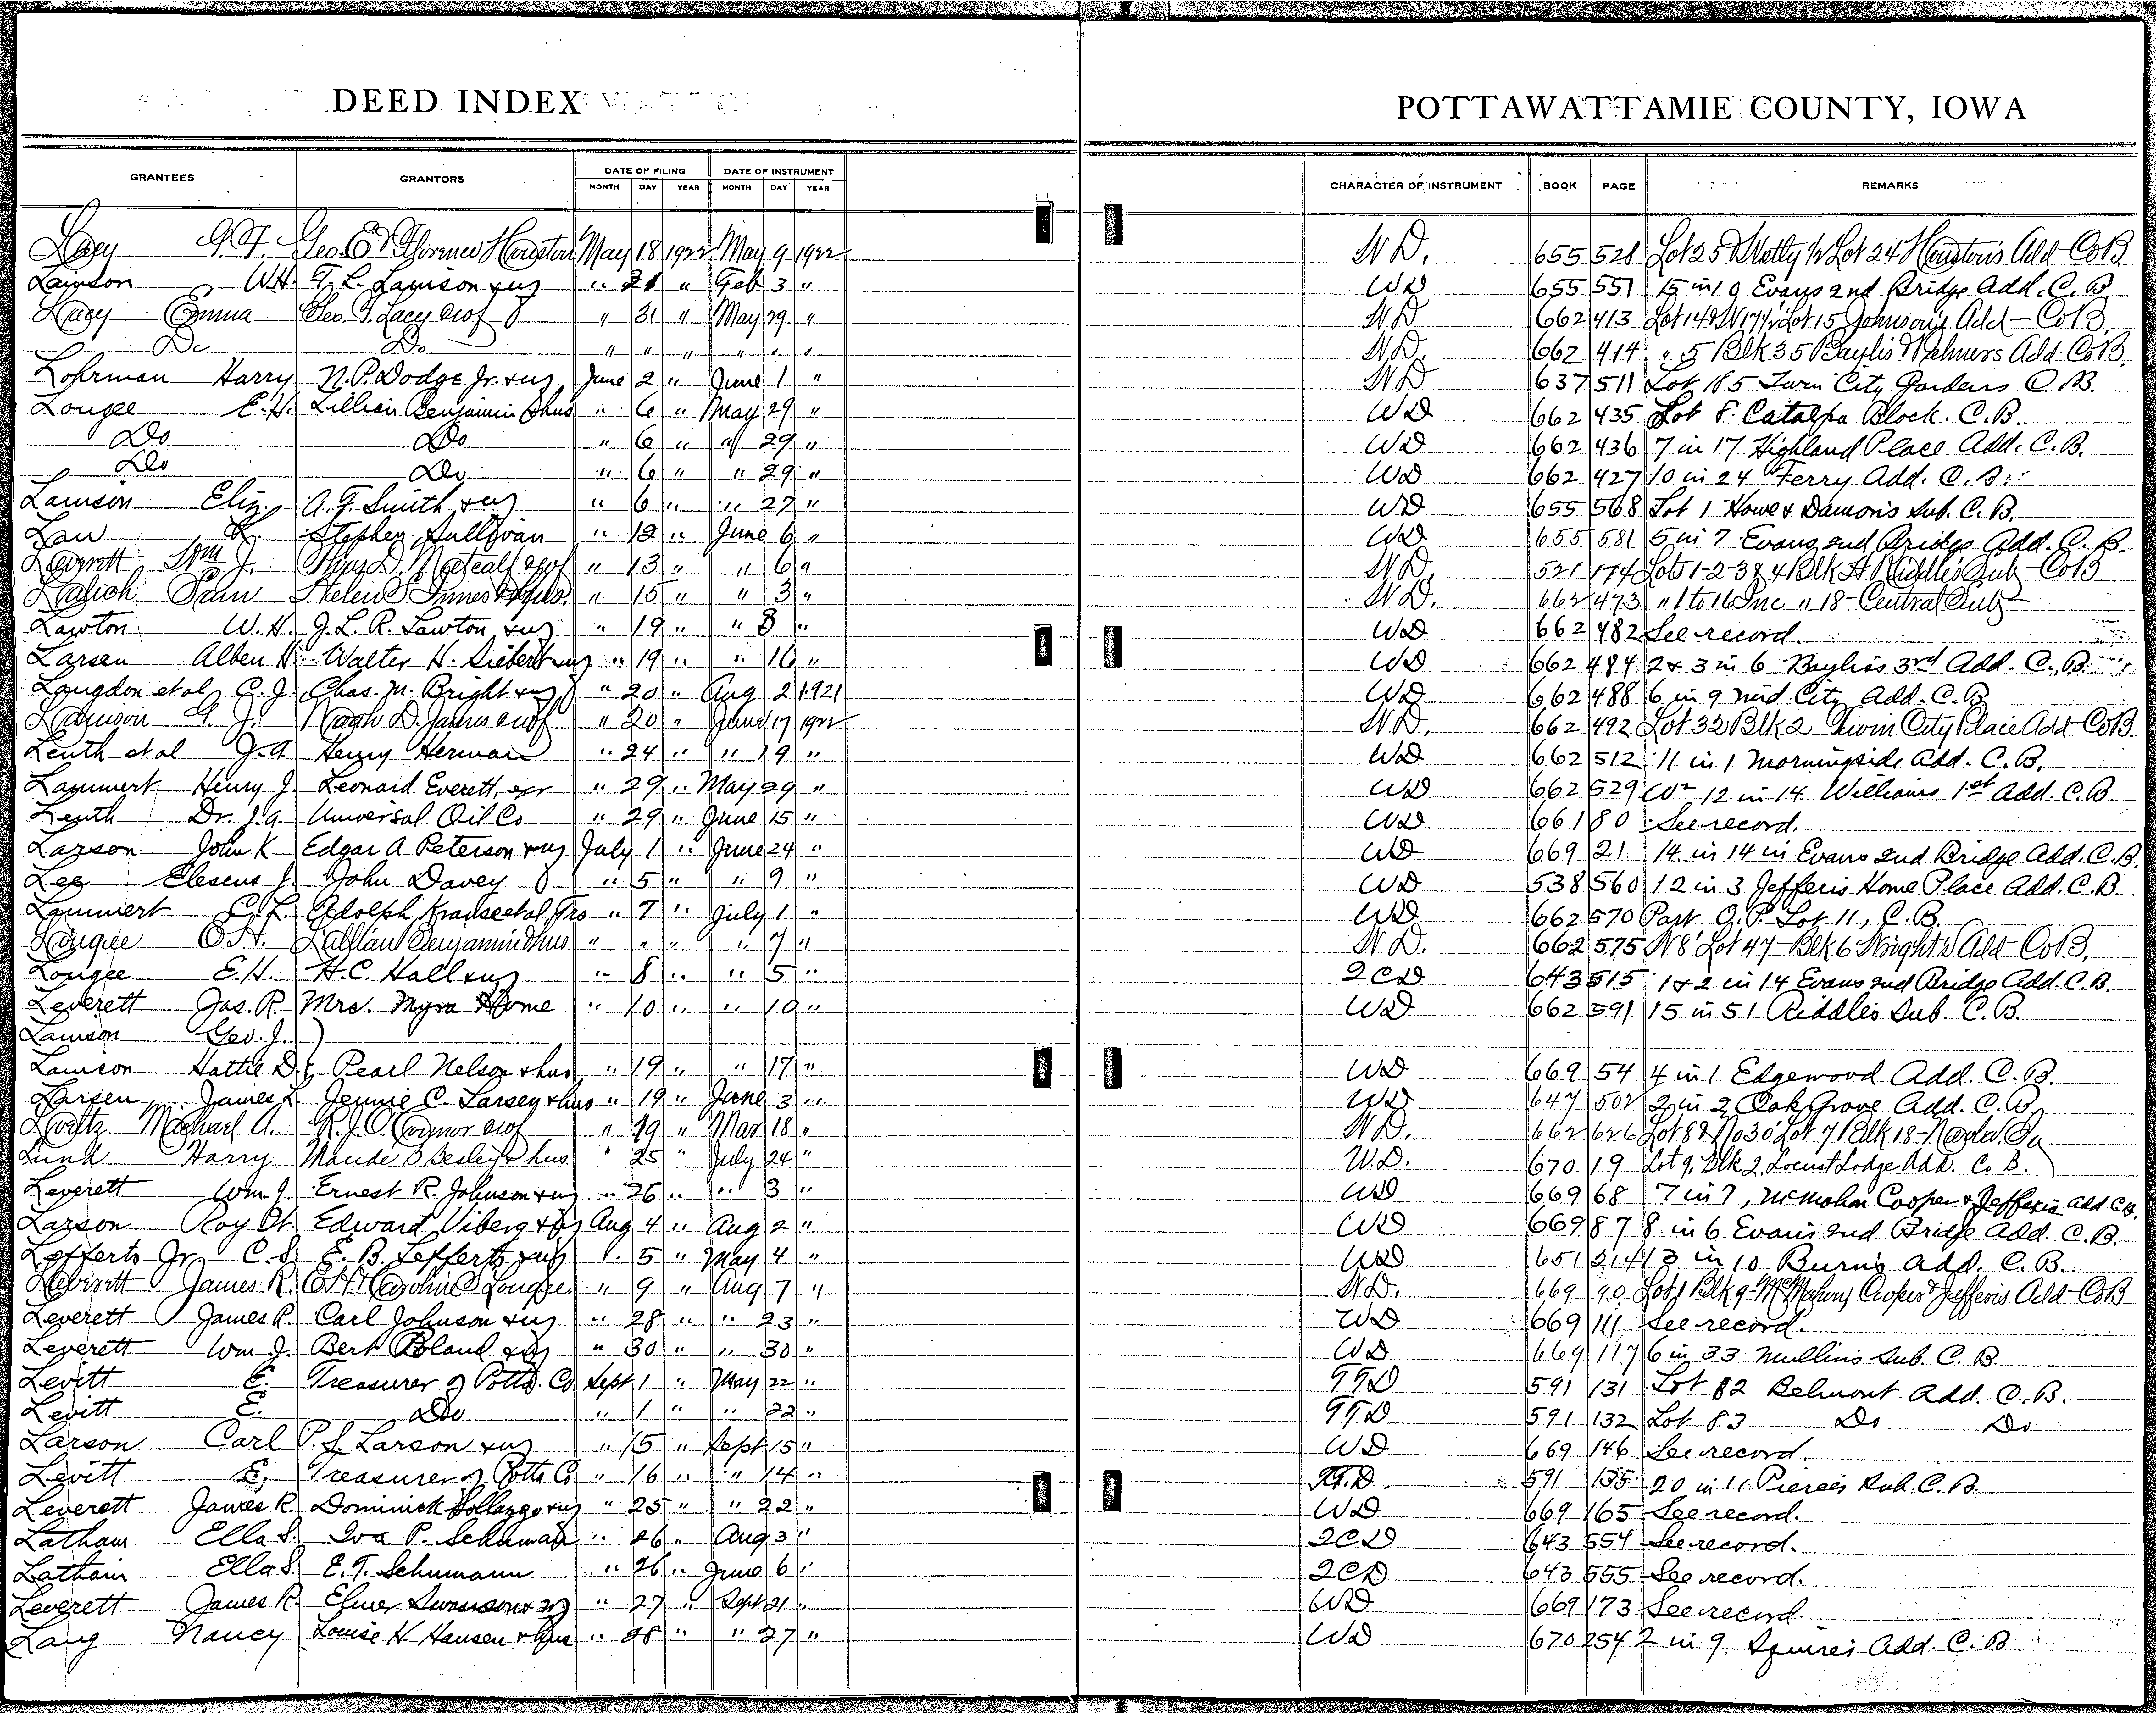 DEED INDEX
POTTAWATTAMIE COUNTY, IOWA
GRANTEES GRANTORS DATE OF FILING DATE OF INSTRUMENT CHARACTER OF INSTRUMENT BOOK PAGE REMARKS
MONTH DAY YEAR MONTH DAY YEAR
Lacy G.F. Geo. E & Florence Houston May 18 1922 May 9 1922 W.D. 655 528 Lot 25 & Wly 1/2 Lot 24 Houston's Add Co B
Lainson W.H. F. L. Lainson & ux " 21 " Feb 3 " WD 655 551 15 in 10 Evans 2nd Bridge Add. C. B.
Lacy Emma Geo. F. Lacy " 31 " May 29 " W.D 662 413 Lot 14 & Lot 15 Johnson's Add - Co B.
Do Do " " " " " " W.D. 662 414 " 5 Blk 35 Baylis & Palmers Add Co B.
Lohrman Harry N. P. Dodge Jr. & ux June 2 " June 1 " W.D 637 511 Lot 185 Twin City Gardens C. B.
Lougee E. H. Lillian Benjamin & hus " 6 " May 29 " WD 662 435 Lot 8 Catalpa Block. C. B.
Do Do " 6 " " 29 " WD 662 436 7 in 17 Highland Place Add. C. B.
Do Do " 6 " " 29 " WD 662 427 10 in 24 Ferry Add. C. B.
Lamson Eliz. A. F. Smith & ux " 6 " " 27 " WD 655 568 Lot 1 Howe & Damon's Sub. C. B.
Law Stephen Sullivan " 12 " June 6 " WD 655 581 5 in 7 Evans 2nd Bridge Add. C. B.
Leverett Wm J. Thos D. Metcalf " 13 " " 6 " W.D. 521 174 Lots 1-2-3 & 4 Blk A Riddles Sub Co B
Sam Helen S Innes & hus. " 15 " " 3 " W.D. 662 473 " 1 to 16 Inc " 18 - Central Sub
Lawton W. H. J. L. R. Lawton & ux " 19 " " 8 " WD 662 482 See record.
Larsen Alben H. Walter H. Siebert & ux " 19 " " 16 " WD 662 484 2 & 3 in 6 Bayliss 3rd Add. C. B.
Langdon et al C. J. Chas. M. Bright & ux " 20 " Aug 2 1921 WD 662 488 6 in 9 Mid City Add. C. B
Lamson G. J. Hugh D. James " 20 " June 17 1922 W.D. 662 492 Lot 32 Blk 2 Twin City Place Add Co B.
Leuth et al J. A Henry Herman " 24 " " 19 " WD 662 512 11 in 1 Morningside Add. C. B.
Lammert Henry J. Leonard Everett, exr " 29 " May 29 " WD 662 529 W 1/2 12 in 14 Williams 1st Add. C. B.
Leuth Dr. J. A. Universal Oil Co " 29 " June 15 " WD 661 80 See record.
Larson John K Edgar A Peterson & ux July 1 " June 24 " WD 669 21 14 in 14 in Evans 2nd Bridge Add. C. B.
Lee J. John Davey " 5 " " 9 " WD 538 560 12 in 3 Jefferis Home Place Add. C. B.
Lammert C. L. Adolph Krause et al, Trs " 7 " July 1 " WD 662 570 Part O. P. Lot 11, C. B.
Lougee E.H. Lillian Benjamin & hus " " " " 7 " W.D. 662 575 N 8' Lot 47 - Blk 6 Wright's Add - Co B.
Lougee E. H. H. C. Hall & ux " 8 " " 5 " QCD 643 515 1 & 2 in 14 Evans 2nd Bridge Add. C. B.
Leverett Jas. R. Mrs. Myra Home " 10 " " 10 " WD 662 591 15 in 51 Riddles Sub. C. B.
Lamson Geo. J. )
Lamson Hattie D. Pearl Nelson & hus " 19 " " 17 " WD 669 54 4 in 1 Edgewood Add. C. B.
Larsen James L Jennie C. Larsen & hus " 19 " June 3 " WD 647 502 2 in 2 Oak Grove Add. C. B.
Michael A. R. J. O'Connor " 19 " Mar 18 " W.D. 662 626 Lot 8 & No 30' Lot 7 Blk 18 - Neola, Ia
Lund Harry Maude B Besley & hus. " 25 " July 24 " W.D. 670 19 Lot 9, Blk 2, Locust Lodge Add. Co B.
Leverett Wm J. Ernest R. Johnson & ux " 26 " " 3 " WD 669 68 7 in 7, McMahon Cooper & Jefferis Add C. B.
Larson Roy W. Edward Viberg & ux Aug 4 " Aug 2 " WD 669 87 8 in 6 Evans 2nd Bridge Add. C. B.
Lefferts Jr C. S. E. B. Lefferts & ux " 5 " May 4 " WD 651 214 13 in 10 Burns Add. C. B.
Leverett James R. E.H. & Caroline C Lougee " 9 " Aug 7 " W.D. 669 90 Lot 1 Blk 9 - McMahons Cooper & Jefferis Add Co B
Leverett James R. Carl Johnson & ux " 28 " " 23 " WD 669 111 See record.
Leverett Wm J. Bert Boland & ux " 30 " " 30 " WD 669 117 6 in 33 Mullins Sub. C. B.
Levitt E. Treasurer of Potts. Co Sept 1 " May 22 " TTD 591 131 Lot 82 Belmont Add. C. B.
Levitt E. Do " 1 " " 22 " TTD 591 132 Lot 83 Do Do
Larson Carl P. S. Larson & ux " 15 " Sept 15 " WD 669 146 See record.
Levitt E. Treasurer of Potts Co " 16 " " 14 " T.T.D. 591 135 20 in 11 Pierces Sub. C. B.
Leverett James R. Dominick & ux " 25 " " 22 " WD 669 165 See record.
Latham Ella S. Iva P. Schuman " 26 " Aug 3 " QCD 643 554 See record.
Latham Ella S. E. T. Schumann " 26 " June 6 " QCD 643 555 See record.
Leverett James R. Elmer Swanson & ux " 27 " Sept 21 " WD 669 173 See record.
Lang Nancy Louise H Hansen & hus " 28 " " 27 " WD 670 254 2 in 9 Squires Add. C. B